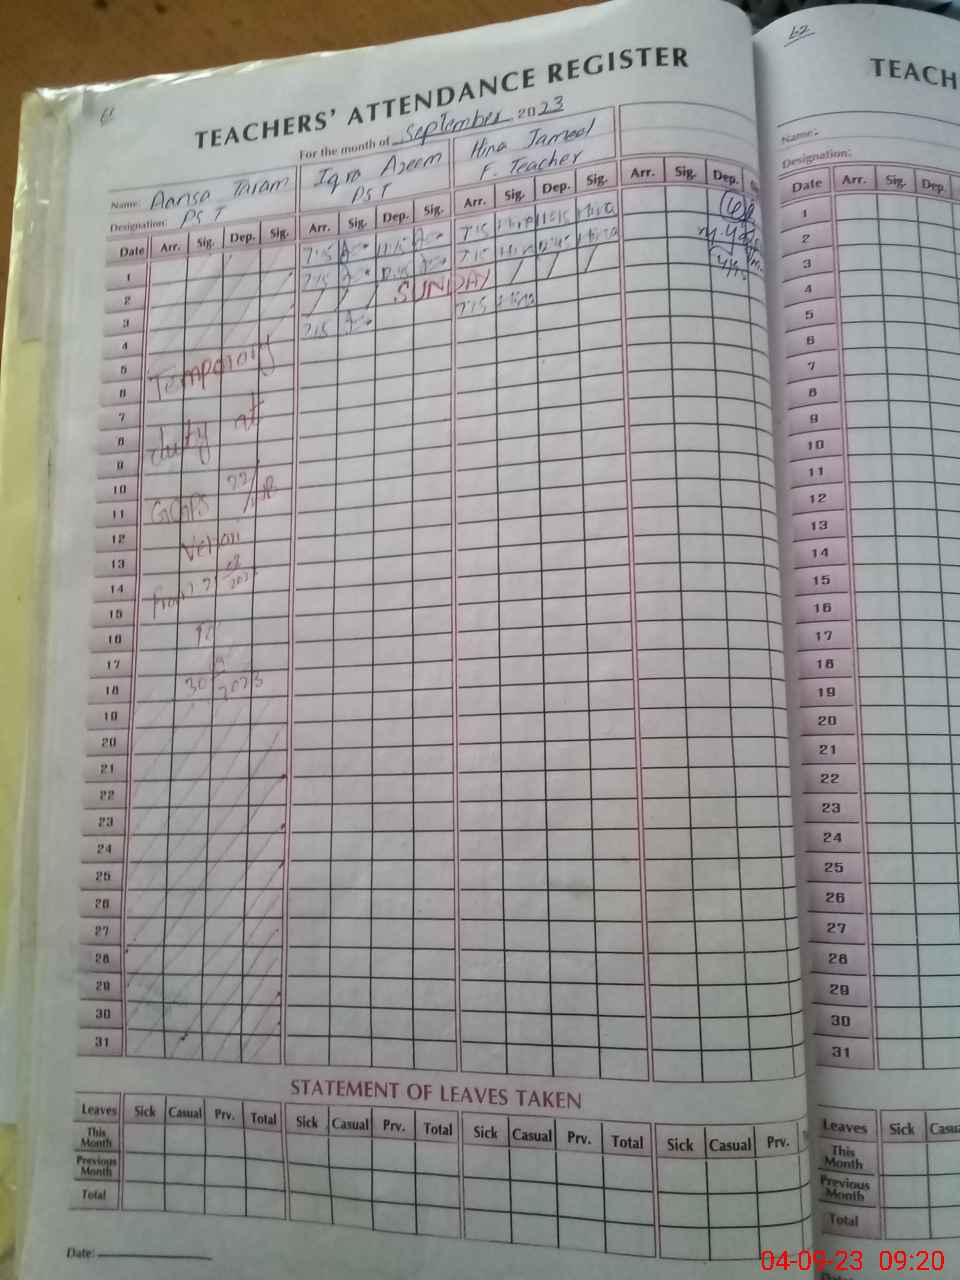 61
TEACHERS' ATTENDANCE REGISTER
For the month of September 2023
Name: Aansa Iqra Azeem Hina Jameel
Designation: PST PST F. Teacher
Date Arr. Sig. Dep. Sig. Arr. Sig. Dep. Sig. Arr. Sig. Dep. Sig. Arr. Sig. Dep.
1 7:15 11:15 7:15 Hina 11:15 Hina
2 7:15 7:15 Hina Hina
3 SUNDAY
4 7:15 7:15 Hina
5
6 Temporary
7
8 duty at
9
10
11
12
13
14
15 From
16
17
18 30 9 2023
19
20
21
22
23
24
25
26
27
28
29
30
31
STATEMENT OF LEAVES TAKEN
Leaves Sick Casual Prv. Total Sick Casual Prv. Total Sick Casual Prv. Total Sick Casual Prv.
This Month
Previous Month
Total
Date:
62
TEACH
Name:
Designation:
Date Arr. Sig. Dep.
1
2
3
4
5
6
7
8
9
10
11
12
13
14
15
16
17
18
19
20
21
22
23
24
25
26
27
28
29
30
31
Leaves Sick Casua
This Month
Previous Month
Total
04-09-23 09:20